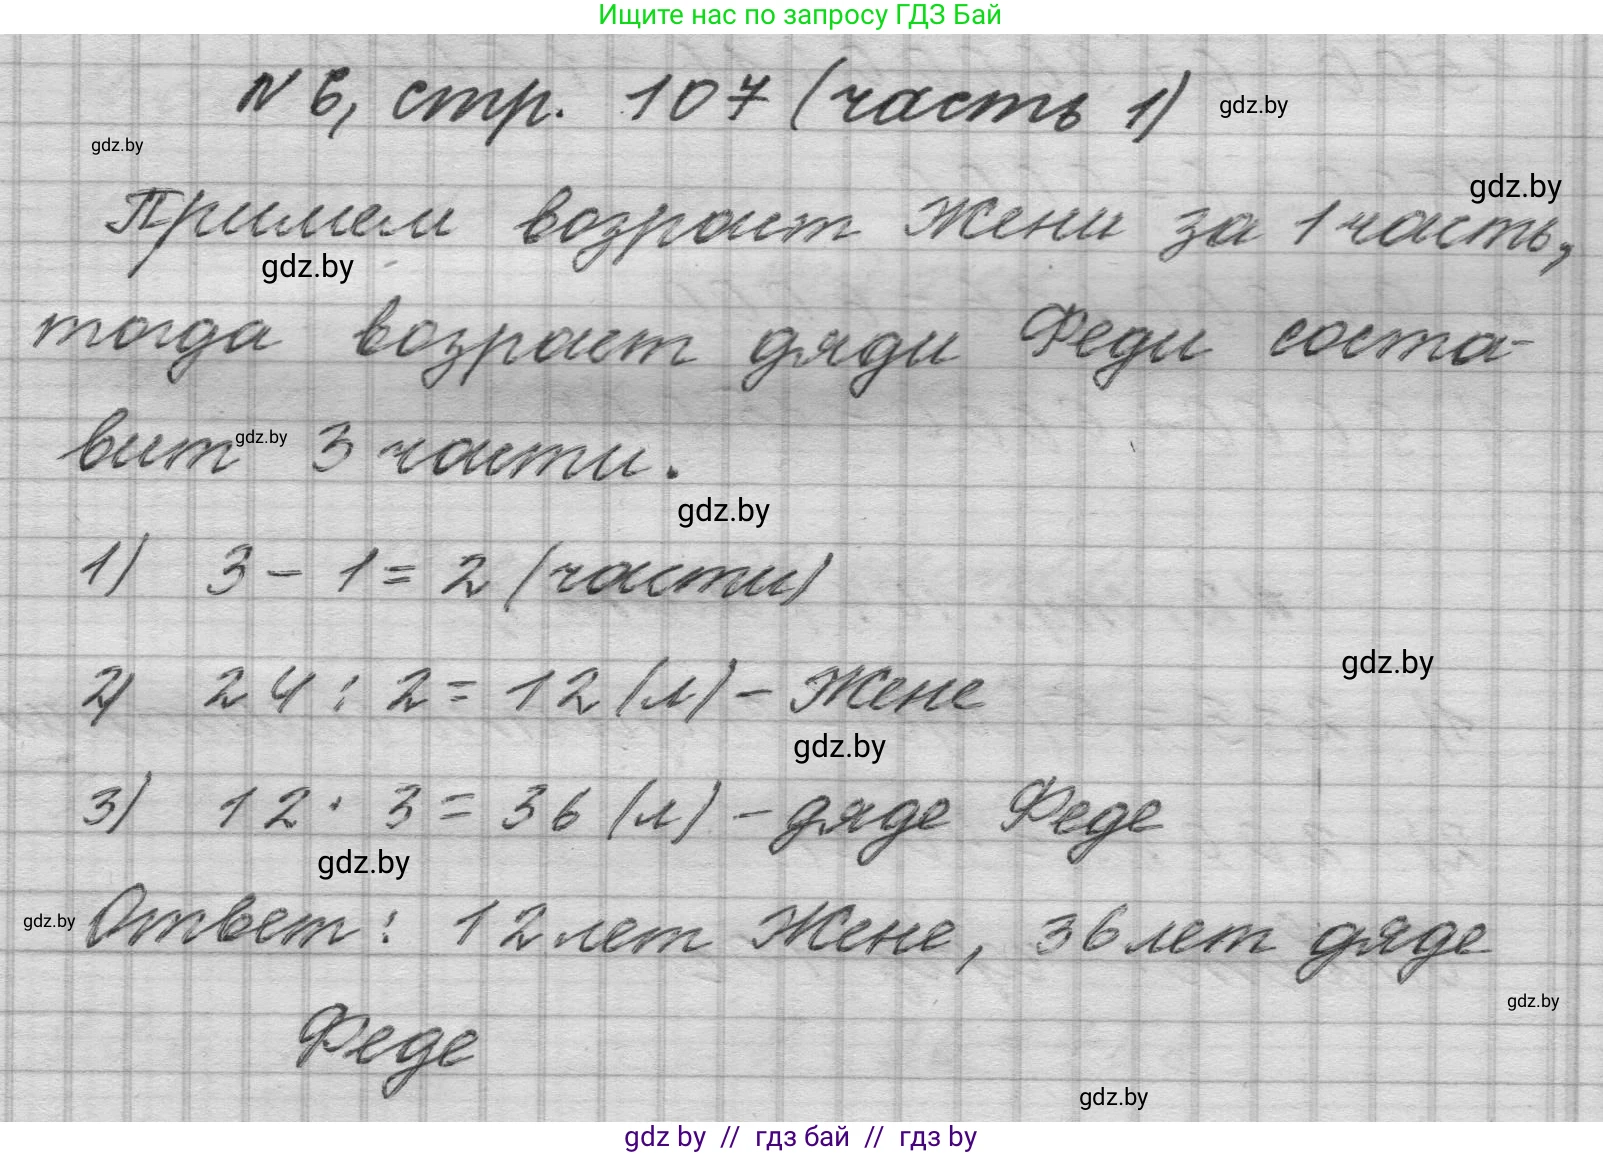 Ищите нас по запросу ГДЗ Бай
N 6, стр. 107 (часть 1)
gdz.by
gdz.by
gdz.by
Примем возраст Жени за 1 часть,
gdz.by
тогда возраст дяди Феди соста-
вит 3 части.
gdz.by
gdz.by
1) 3 - 1 = 2 (части)
gdz.by
2) 24 : 2 = 12 (л) - Жене
gdz.by
3) 12 · 3 = 36 (л) - дяде Феде
gdz.by
gdz.by
Ответ: 12 лет Жене, 36 лет дяде
gdz.by
Феде
gdz.by
gdz by // гдз бай // гдз by